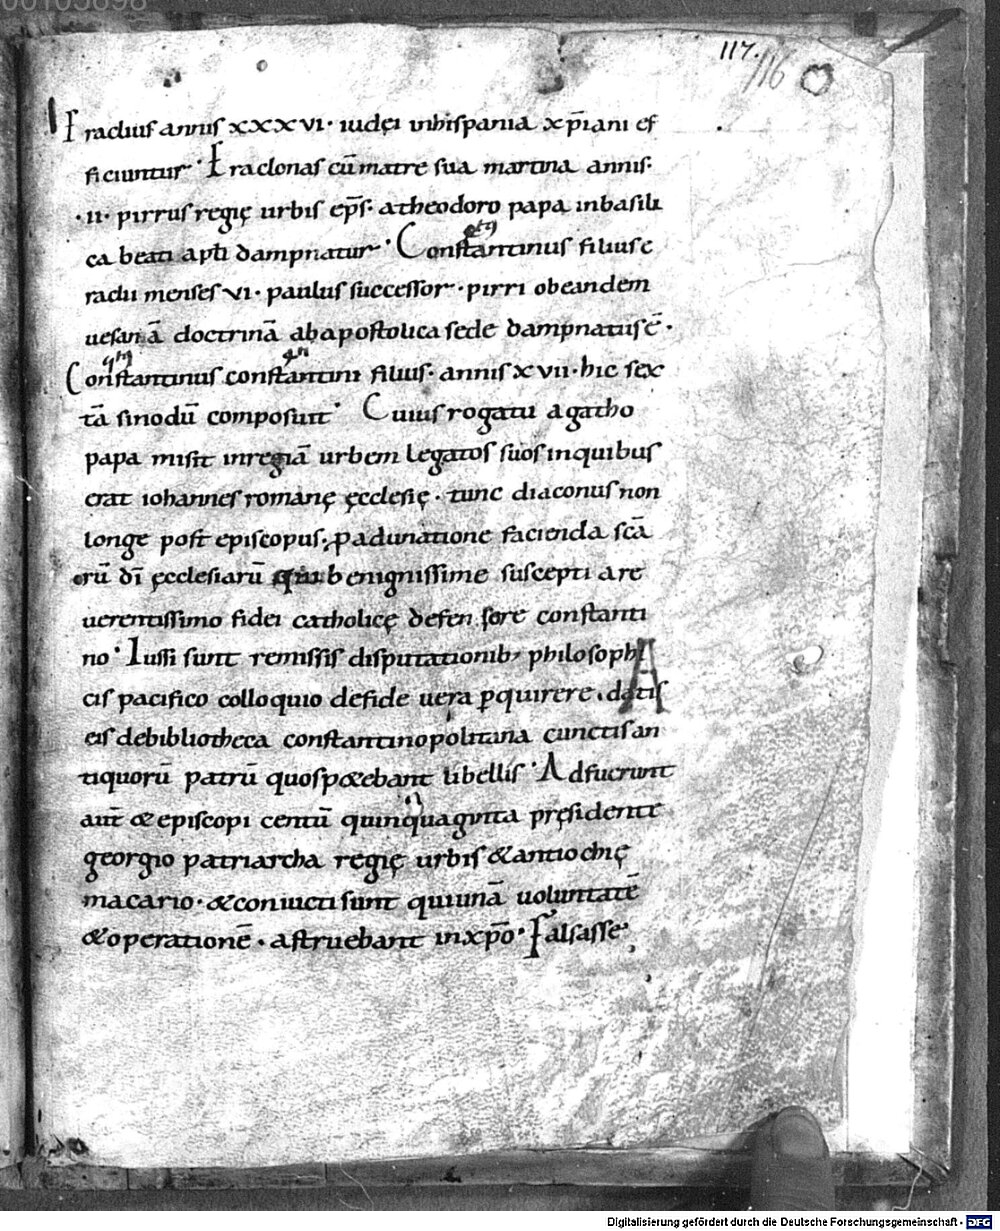 00105898
117. 116
Eraclius annis xxxvi· iudęi inhispania xp̄iani ef
ficiuntur· Eraclonas cū matre sua martina annis·
·ii· pirrus regię urbis ep̄s· atheodoro papa inbasili
ca beati apl̄i dampnatur· Constantinus filius e
raclii menses vi· paulus successor· pirri obeandem
uesanā doctrinā abapostolica sede dampnatus ē·
Constantinus constantini filius· annis xvii· hic sex
tā sinodū composuit· Cuius rogatu agatho
papa misit inregiā urbem legatos suos inquibus
erat iohannes romanę ęcclesię· tunc diaconus non
longe post episcopus· ꝓadunatione facienda scā
rū dī ęcclesiarū qui benignissime suscepti are
uerentissimo fidei catholicę defensore constanti
no· Iussi sunt remissis disputationib; philosophi
cis pacifico colloquio defide uera ꝑquirere· datis
A
eis debibliotheca constantinopolitana cunctis an
tiquorū patrū quos p&ebant libellis· Adfuerunt
aut̄ & episcopi centū quinquaginta pręsidente
georgio patriarcha regię urbis & antiochię
macario· & conuicti sunt qui unā uoluntatē
& operationē· astruebant inxp̄o· Falsasse
Digitalisierung gefördert durch die Deutsche Forschungsgemeinschaft - DFG